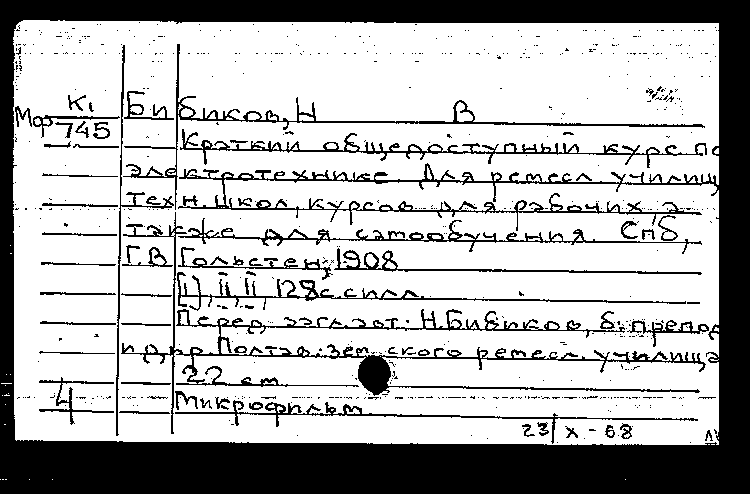 К1 Бибиков, Н В
Мф 745
Краткий общедоступный курс по
электротехнике. Для ремесл. училищ,
техн. школ, курсов для рабочих, а
также для самообучения. Спб,
Г.В Гольстен, 1908
[I], II, II, 128с. с илл.
Перед. загл. авт: Н. Бибиков, б. препод
и д, пр. Полтав. зем. ского ремесл. училища
22 см
4 Микрофильм
23 X - 68